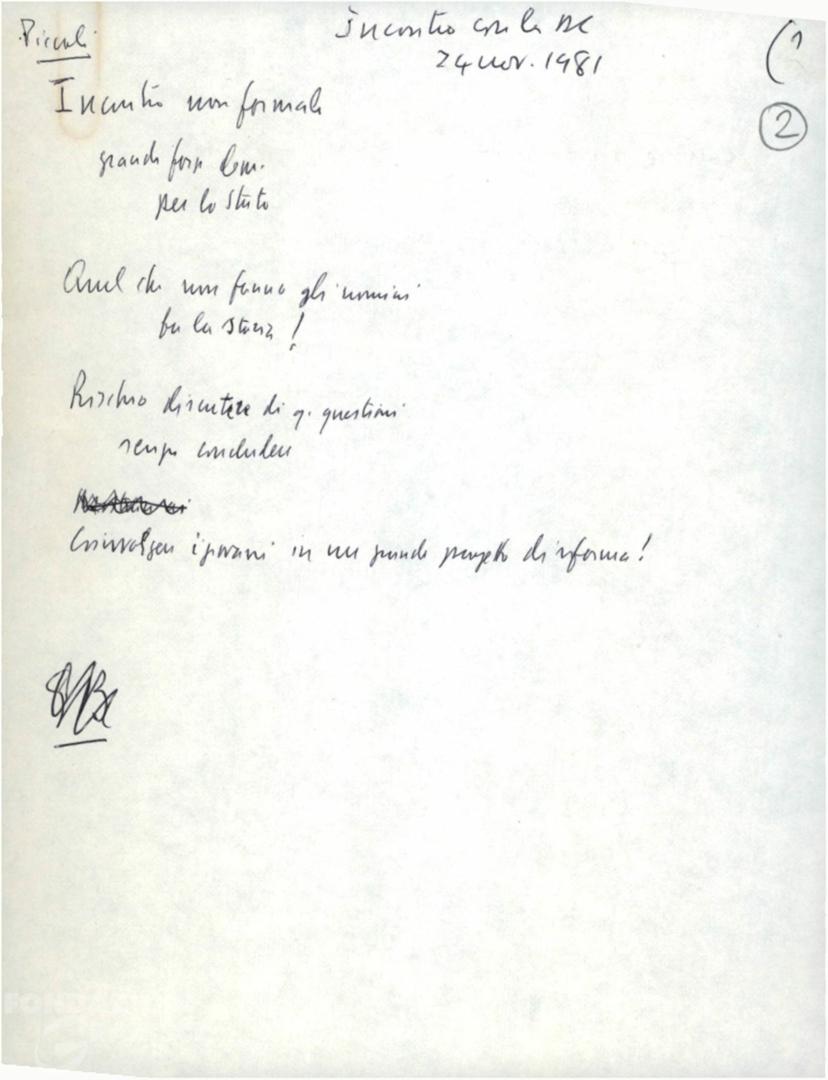 Piccoli
Incontro con la DC
24 nov. 1981
(1
2
Incontro non formale
grande forza dem.
per lo Stato
Quel che non fanno gli uomini
fa la storia!
Rischio discutere di q. questioni
senza concludere
Coinvolgere i giovani in un grande progetto di riforma!
FONDAZIONE